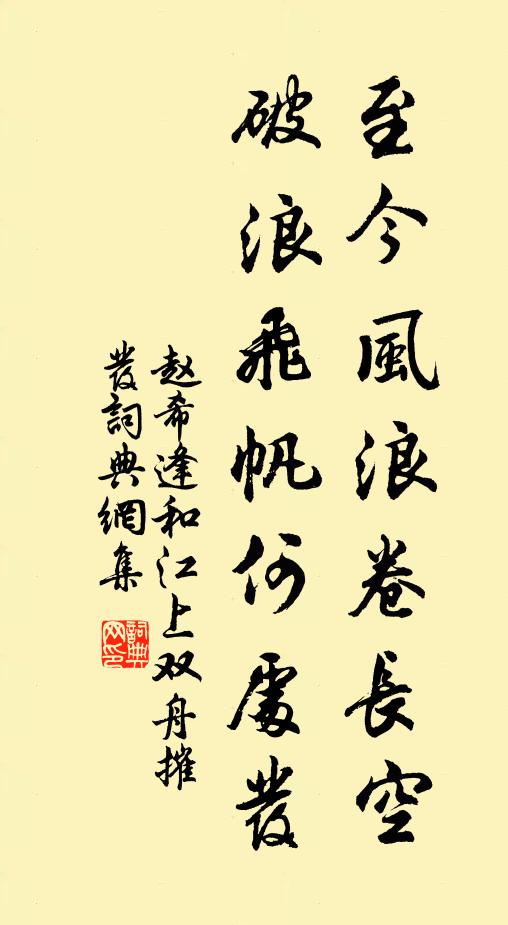 至今風浪卷長空
破浪飛帆何處發
赵希逢和江上双舟摧
發詞典網集
詞典
网印